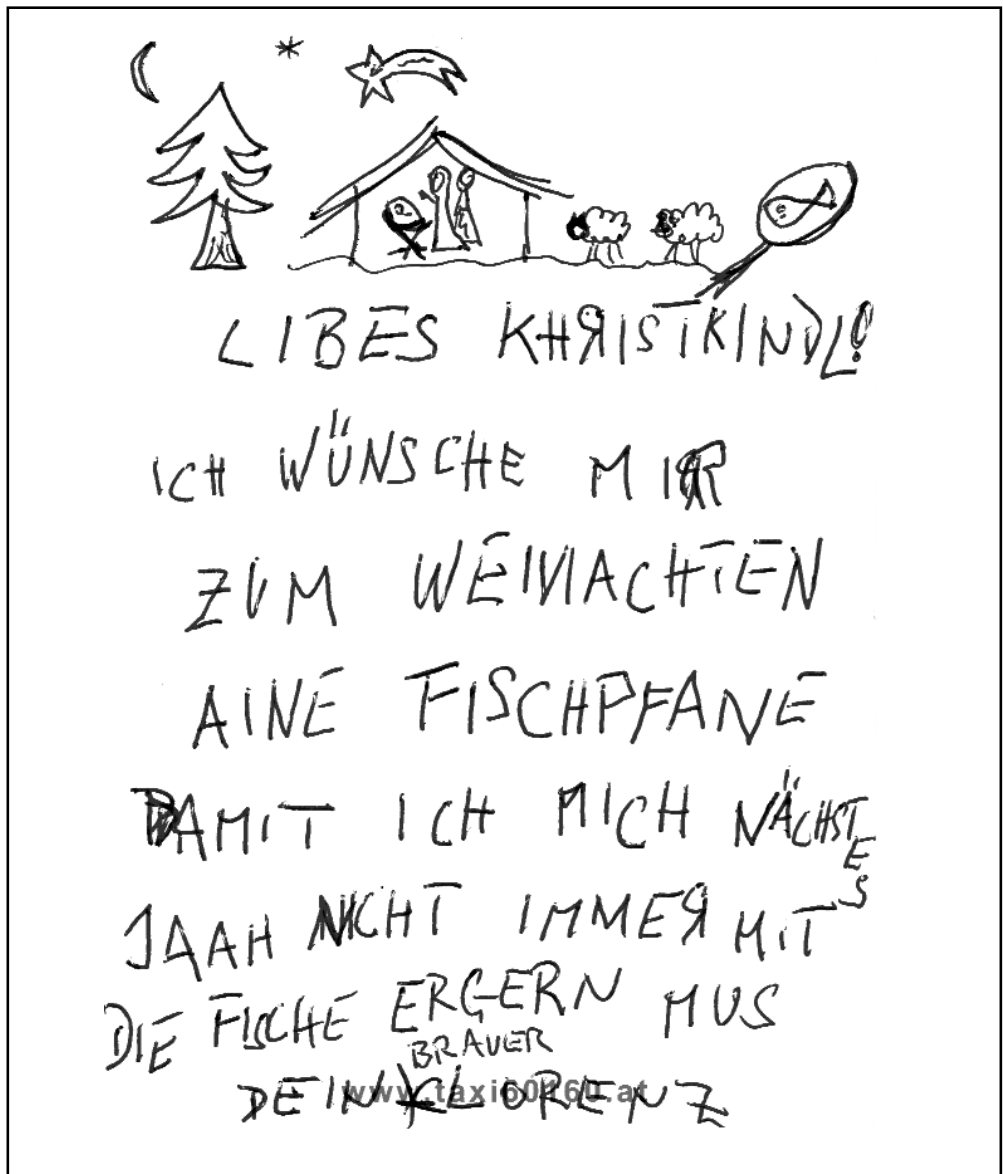 LIBES KHRISTKINDL!
ICH WÜNSCHE MIR
ZUM WEINACHTEN
AINE FISCHPFANE
DAMIT ICH MICH NÄCHSTES
JAAH NICHT IMMER MIT
DIE FISCHE ERGERN MUS
BRAVER
DEIN LORENZ
www.taxi60160.at